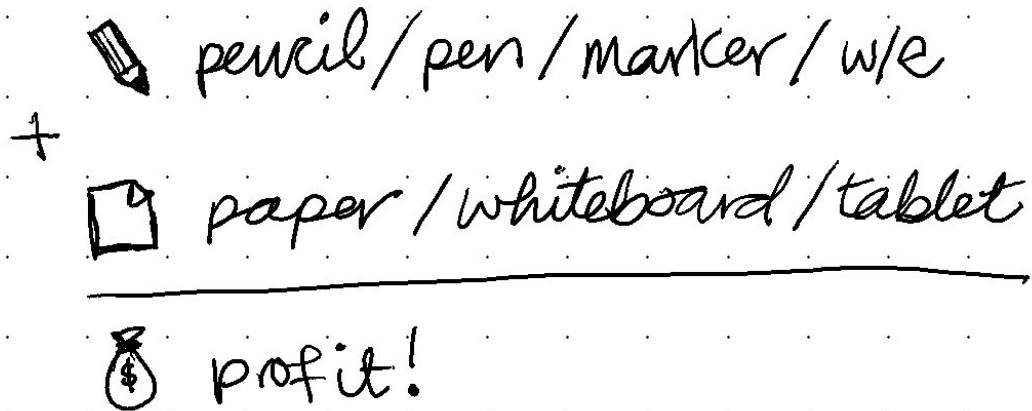 pencil/pen/marker/w/e
+
paper/whiteboard/tablet
$ profit!